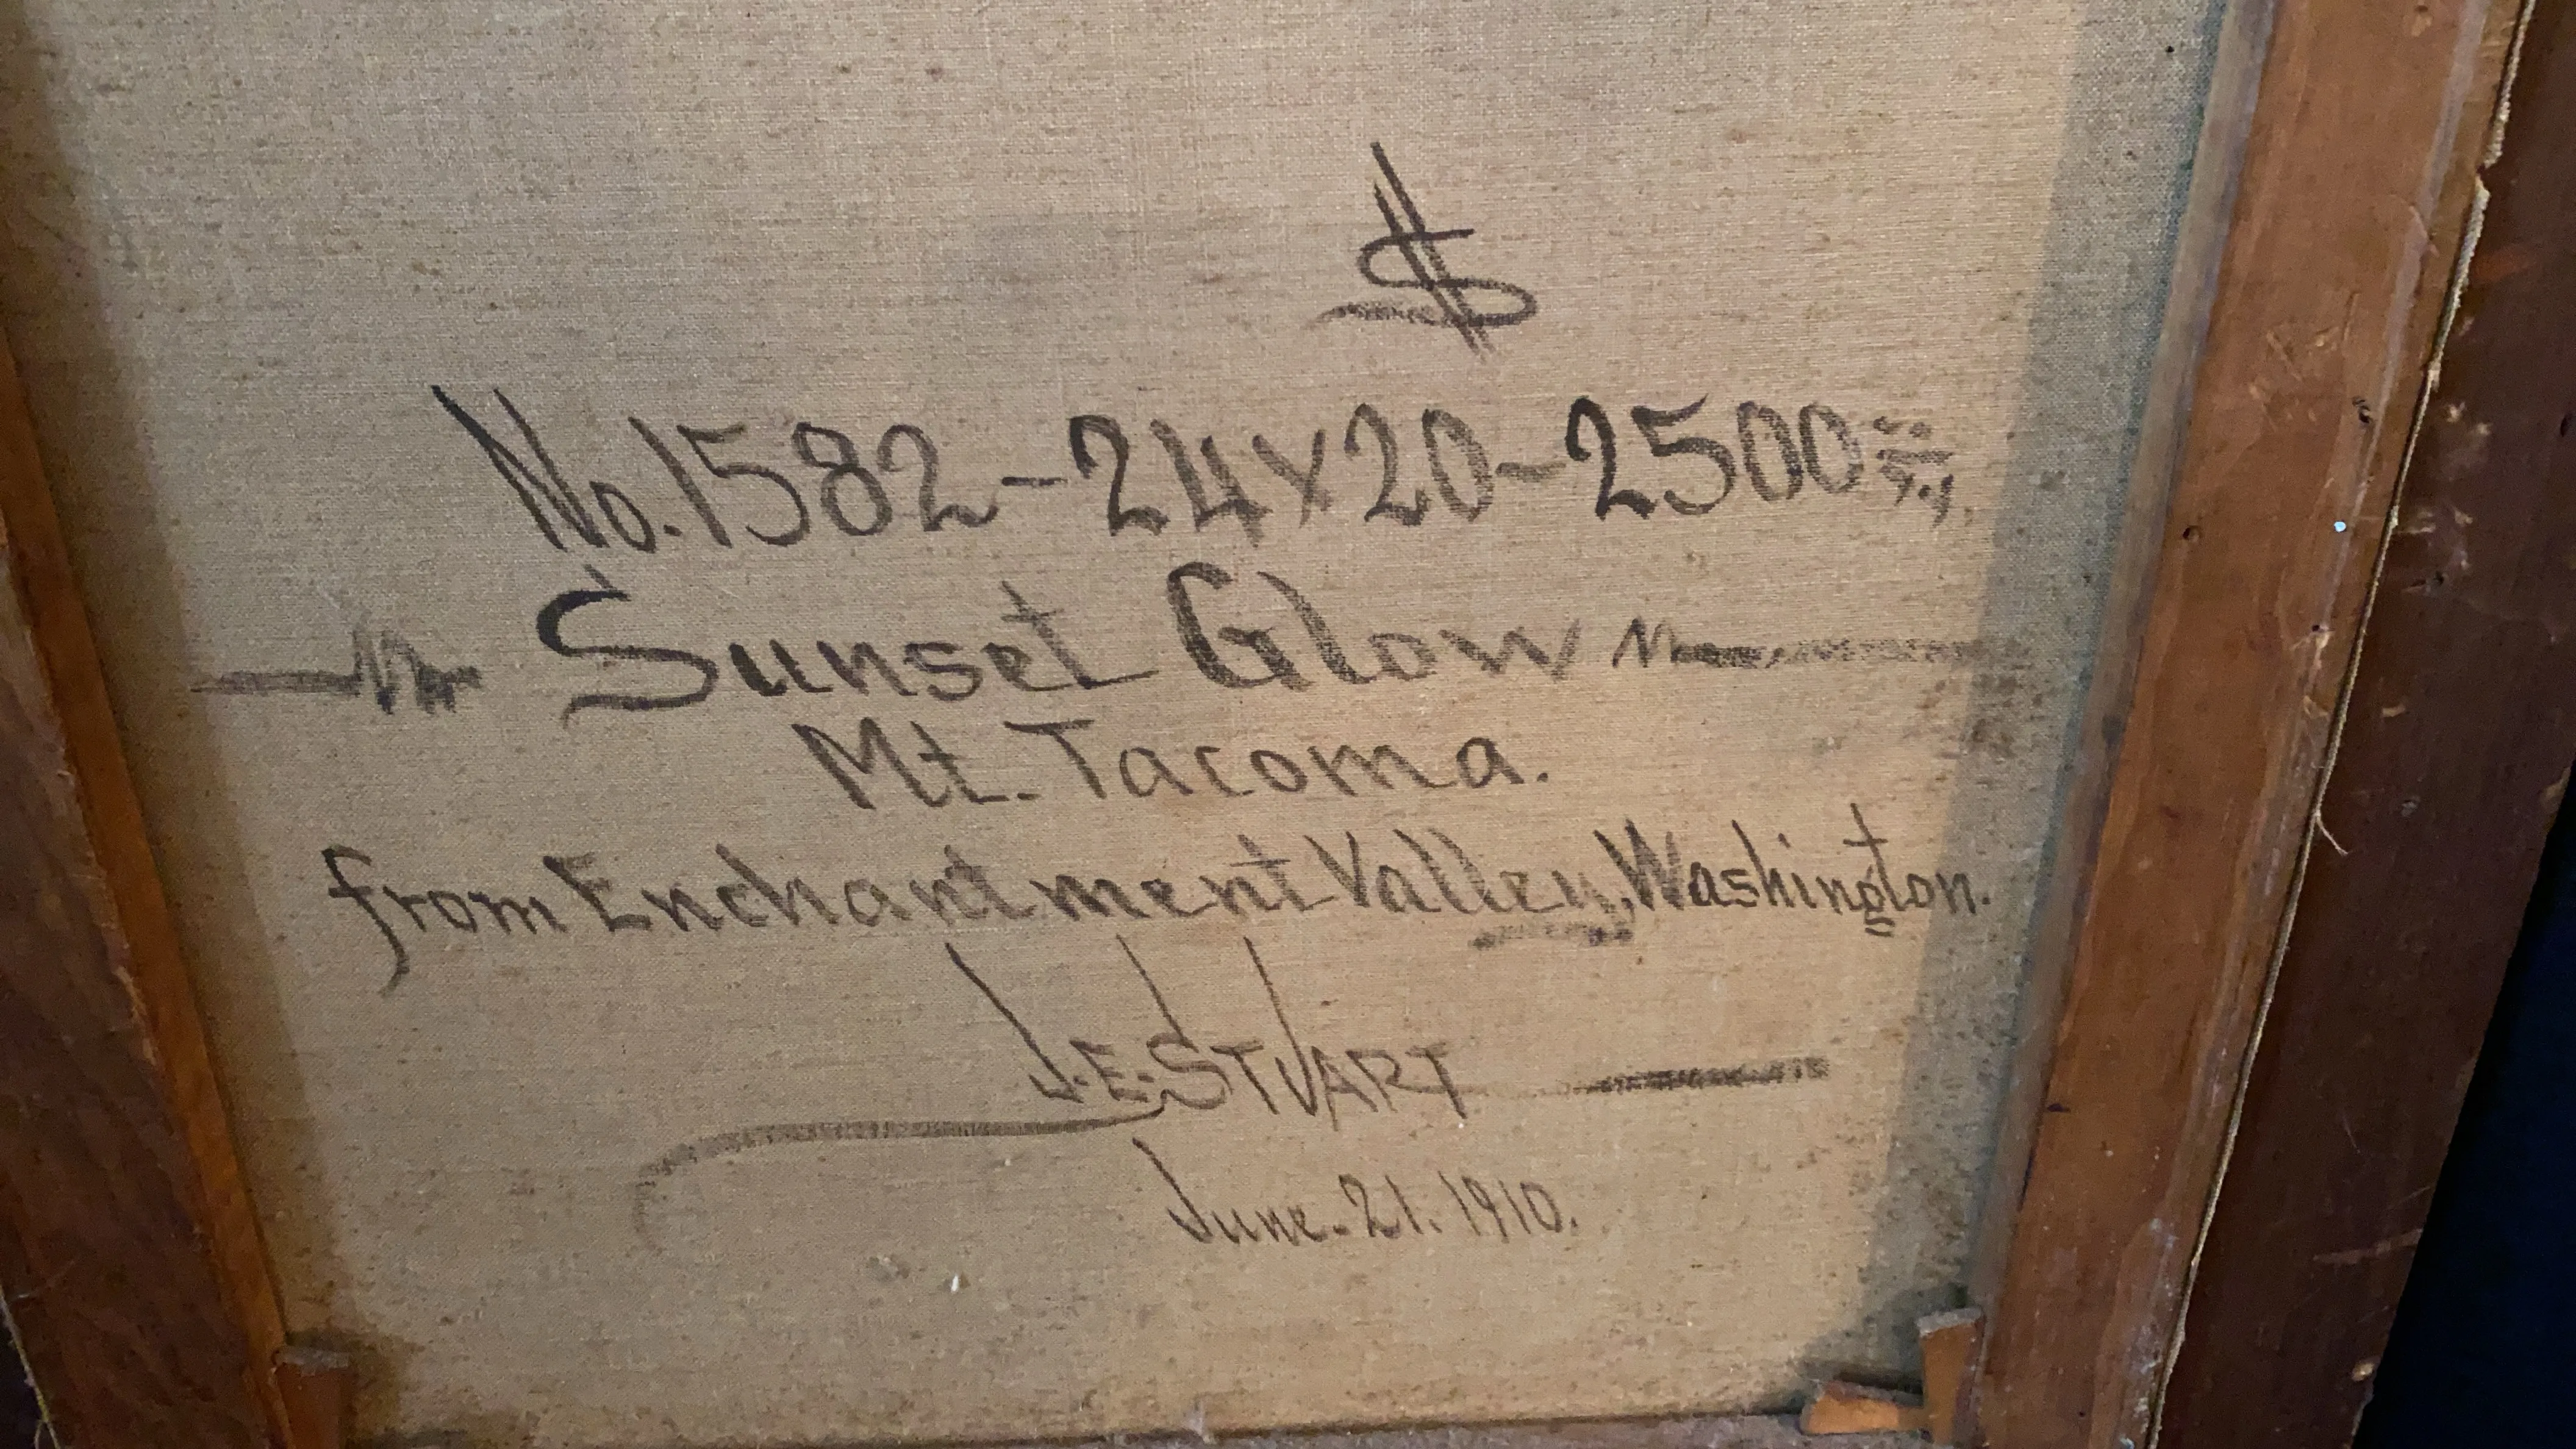 $
No. 1582-24x20-2500
Sunset Glow
Mt. Tacoma.
from Enchantment Valley, Washington.
J.E. STUART
June. 21. 1910.